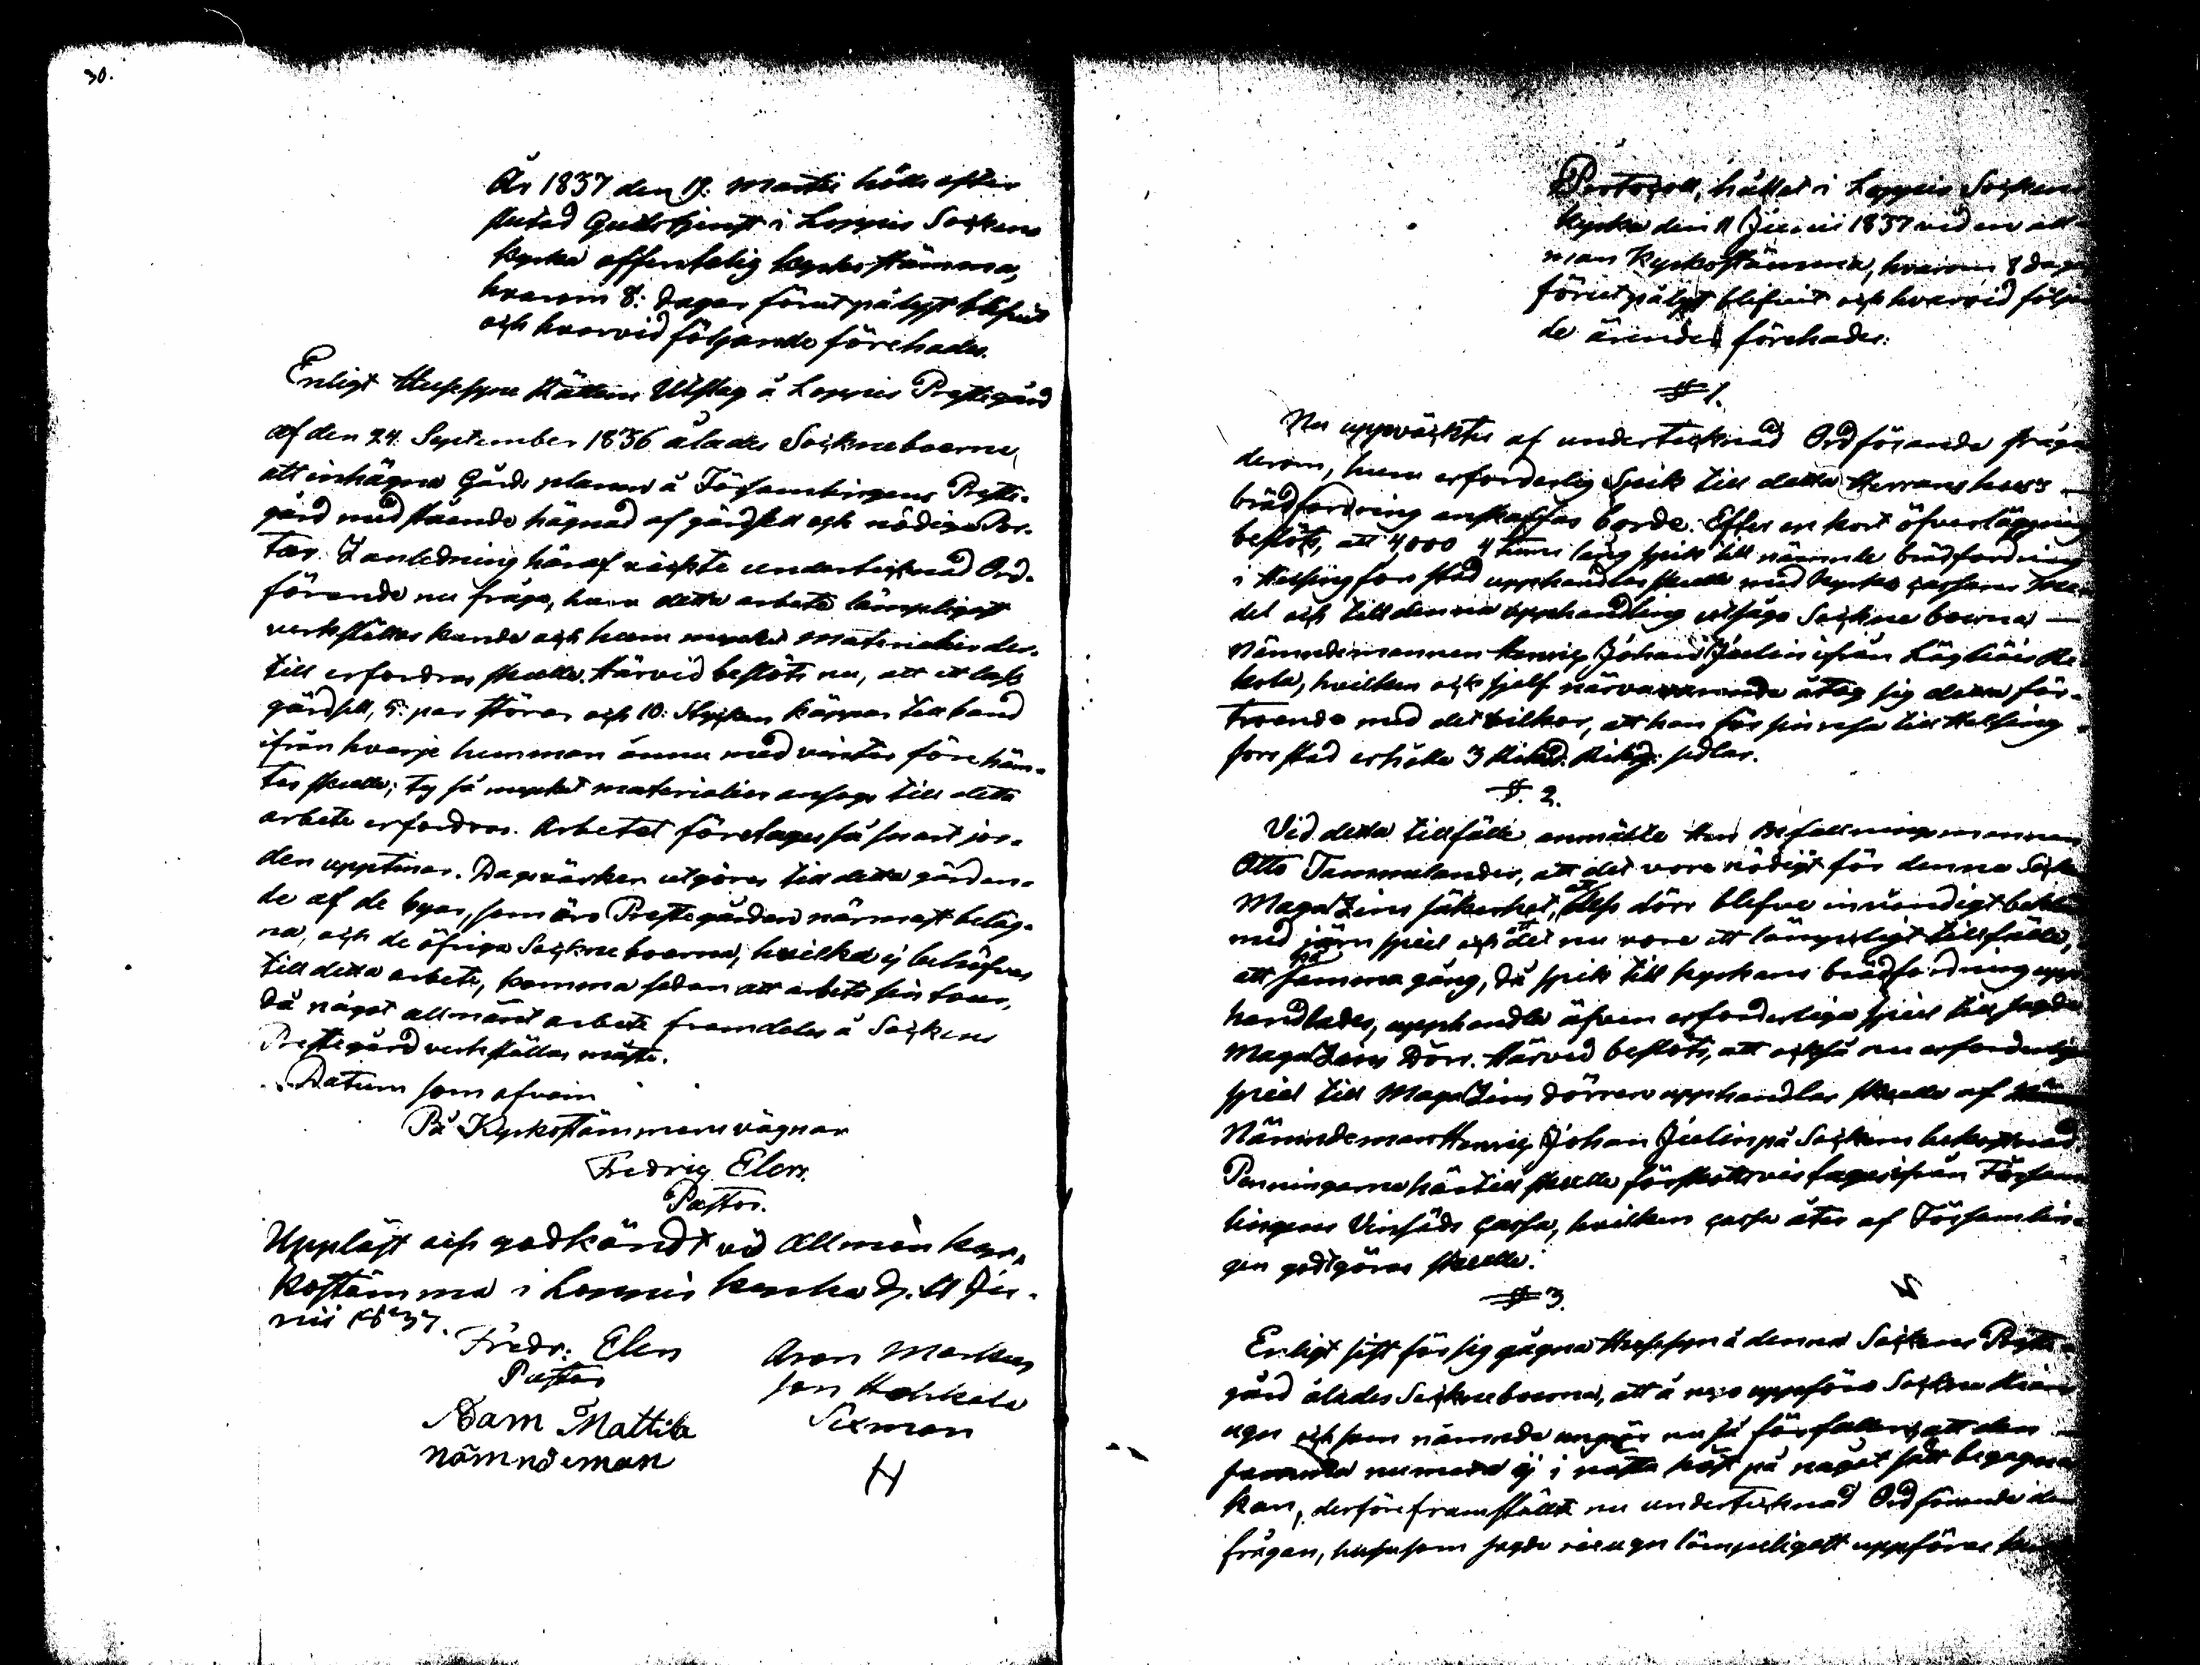 30.
År 1837 den 19. Martii hölls efter
slutad Gudstjenst i Loppis Sockens
kyrka offentelig kyrkostämma,
hvarom 8: dagar förut pålyst blifvit
och hvarvid följande förehades.
Enligt Husesyns Rättens Utslag å Loppis Prestegård
af den 24. September 1836 ålades Sockneboerne,
att inhägna Gårds planen å Församlingens Preste-
gård med stående hägnad af gärdsel och nödige Por-
tar. I anledning häraf väckte undertecknad Ord-
förande nu fråga, huru detta arbete lämpligast
verkställas kunde och huru mycket materialier der-
till erfordras skulle. Härvid beslöts nu, att ett lass
gärdsel, 5. par störar och 10: Stycken käppar till band
ifrån hvarje hemman ännu med vinter före häm-
tas skulle; ty så mycket materialier ansågs till detta
arbete erfordras. Arbetet företages så snart jor-
den upptinar. Dagsvärken utgöres till detta gärdan-
de af de byar, som äro Prestegården närmast beläg-
na, och de öfriga Sockneboerna, hvilka ej behöfvas
till detta arbete, komma sedan att arbeta sin tour,
då något allmänt arbete framdeles å Sockens
Prestegård verkställas måste.
Datum som ofvan
På Kyrkostämmans vägnar
Fredric Elers.
Pastor.
Uppläst och godkändt vid Allmän kyr-
kostämma i Loppis kyrka d. 11 Ju-
nii 1837.
Fredr: Elers
Pastor
Aron Markus
son Hakkala
Sexman
Adam Mattila
nämndeman
H
Protocoll, hållet i Loppis Sockens
kyrka den 11 Junii 1837 vid en all-
män Kyrkostämma, hvarom 8 dagar
förut pålyst blifvit och hvarvid följan-
de ärenden förehades:
§ 1.
Nu uppväcktes af undertecknad Ordförande fråga
derom, huru erforderlig Spik till detta Herrans huus
brädfordring anskaffas borde. Efter en kort öfverläggning
beslöts, att 4000 4 tums lång spik till nämnde brädfordring
i Helsingfors stad upphandlas skulle med Kyrko cassans
del och till denna upphandling utsågo Sockne boerna
Nämndemannen Henric Johan Julin ifrån
kola, hvilken ock sjelf närvarande åtog sig detta för-
troende med det vilkor, att han för sin resa till Helsing
fors stad erhölle 3 Riksd: Riksg: sedlar.
§. 2.
Vid detta tillfälle anmälte Herr Befallningsmannen
Otto Tammelander, att det vore nödigt för denna Sockne
MagaZins säkerhet, att dess dörr blefve invändigt
med järn spjel och att det nu vore ett lämpeligt tillfälle,
att på samma gång, då spik till kyrkans brädfordning upp
handlades, upphandla äfven erforderliga spjel till sagde
MagaZins Dörr. Härvid beslöts, att också nu erforderlig
spjel till MagaZins dörren upphandlas skulle af
Nämndeman Henric Johan Julin på Sockens bekostnad.
Penningarne härtill skulle förskottsvis tagas ifrån Försam
lingens Vinsäds Cassa, hvilken cassa åter af Församlin-
gen godtgöras skulle.
§ 3.
Enligt sist för sig gågna Husesyn å denna Sockens Preste-
gård ålades Sockneboerna, att å nyo uppföra Sockne
ugn och som nämnde ugn är nu så förfallen, att den
samma numera ej i nästa höst på något sätt begagnas
kan, derföre framställte nu undertecknad Ordförande den
frågan, hurusom sagde rieugn lämpeligast uppföras